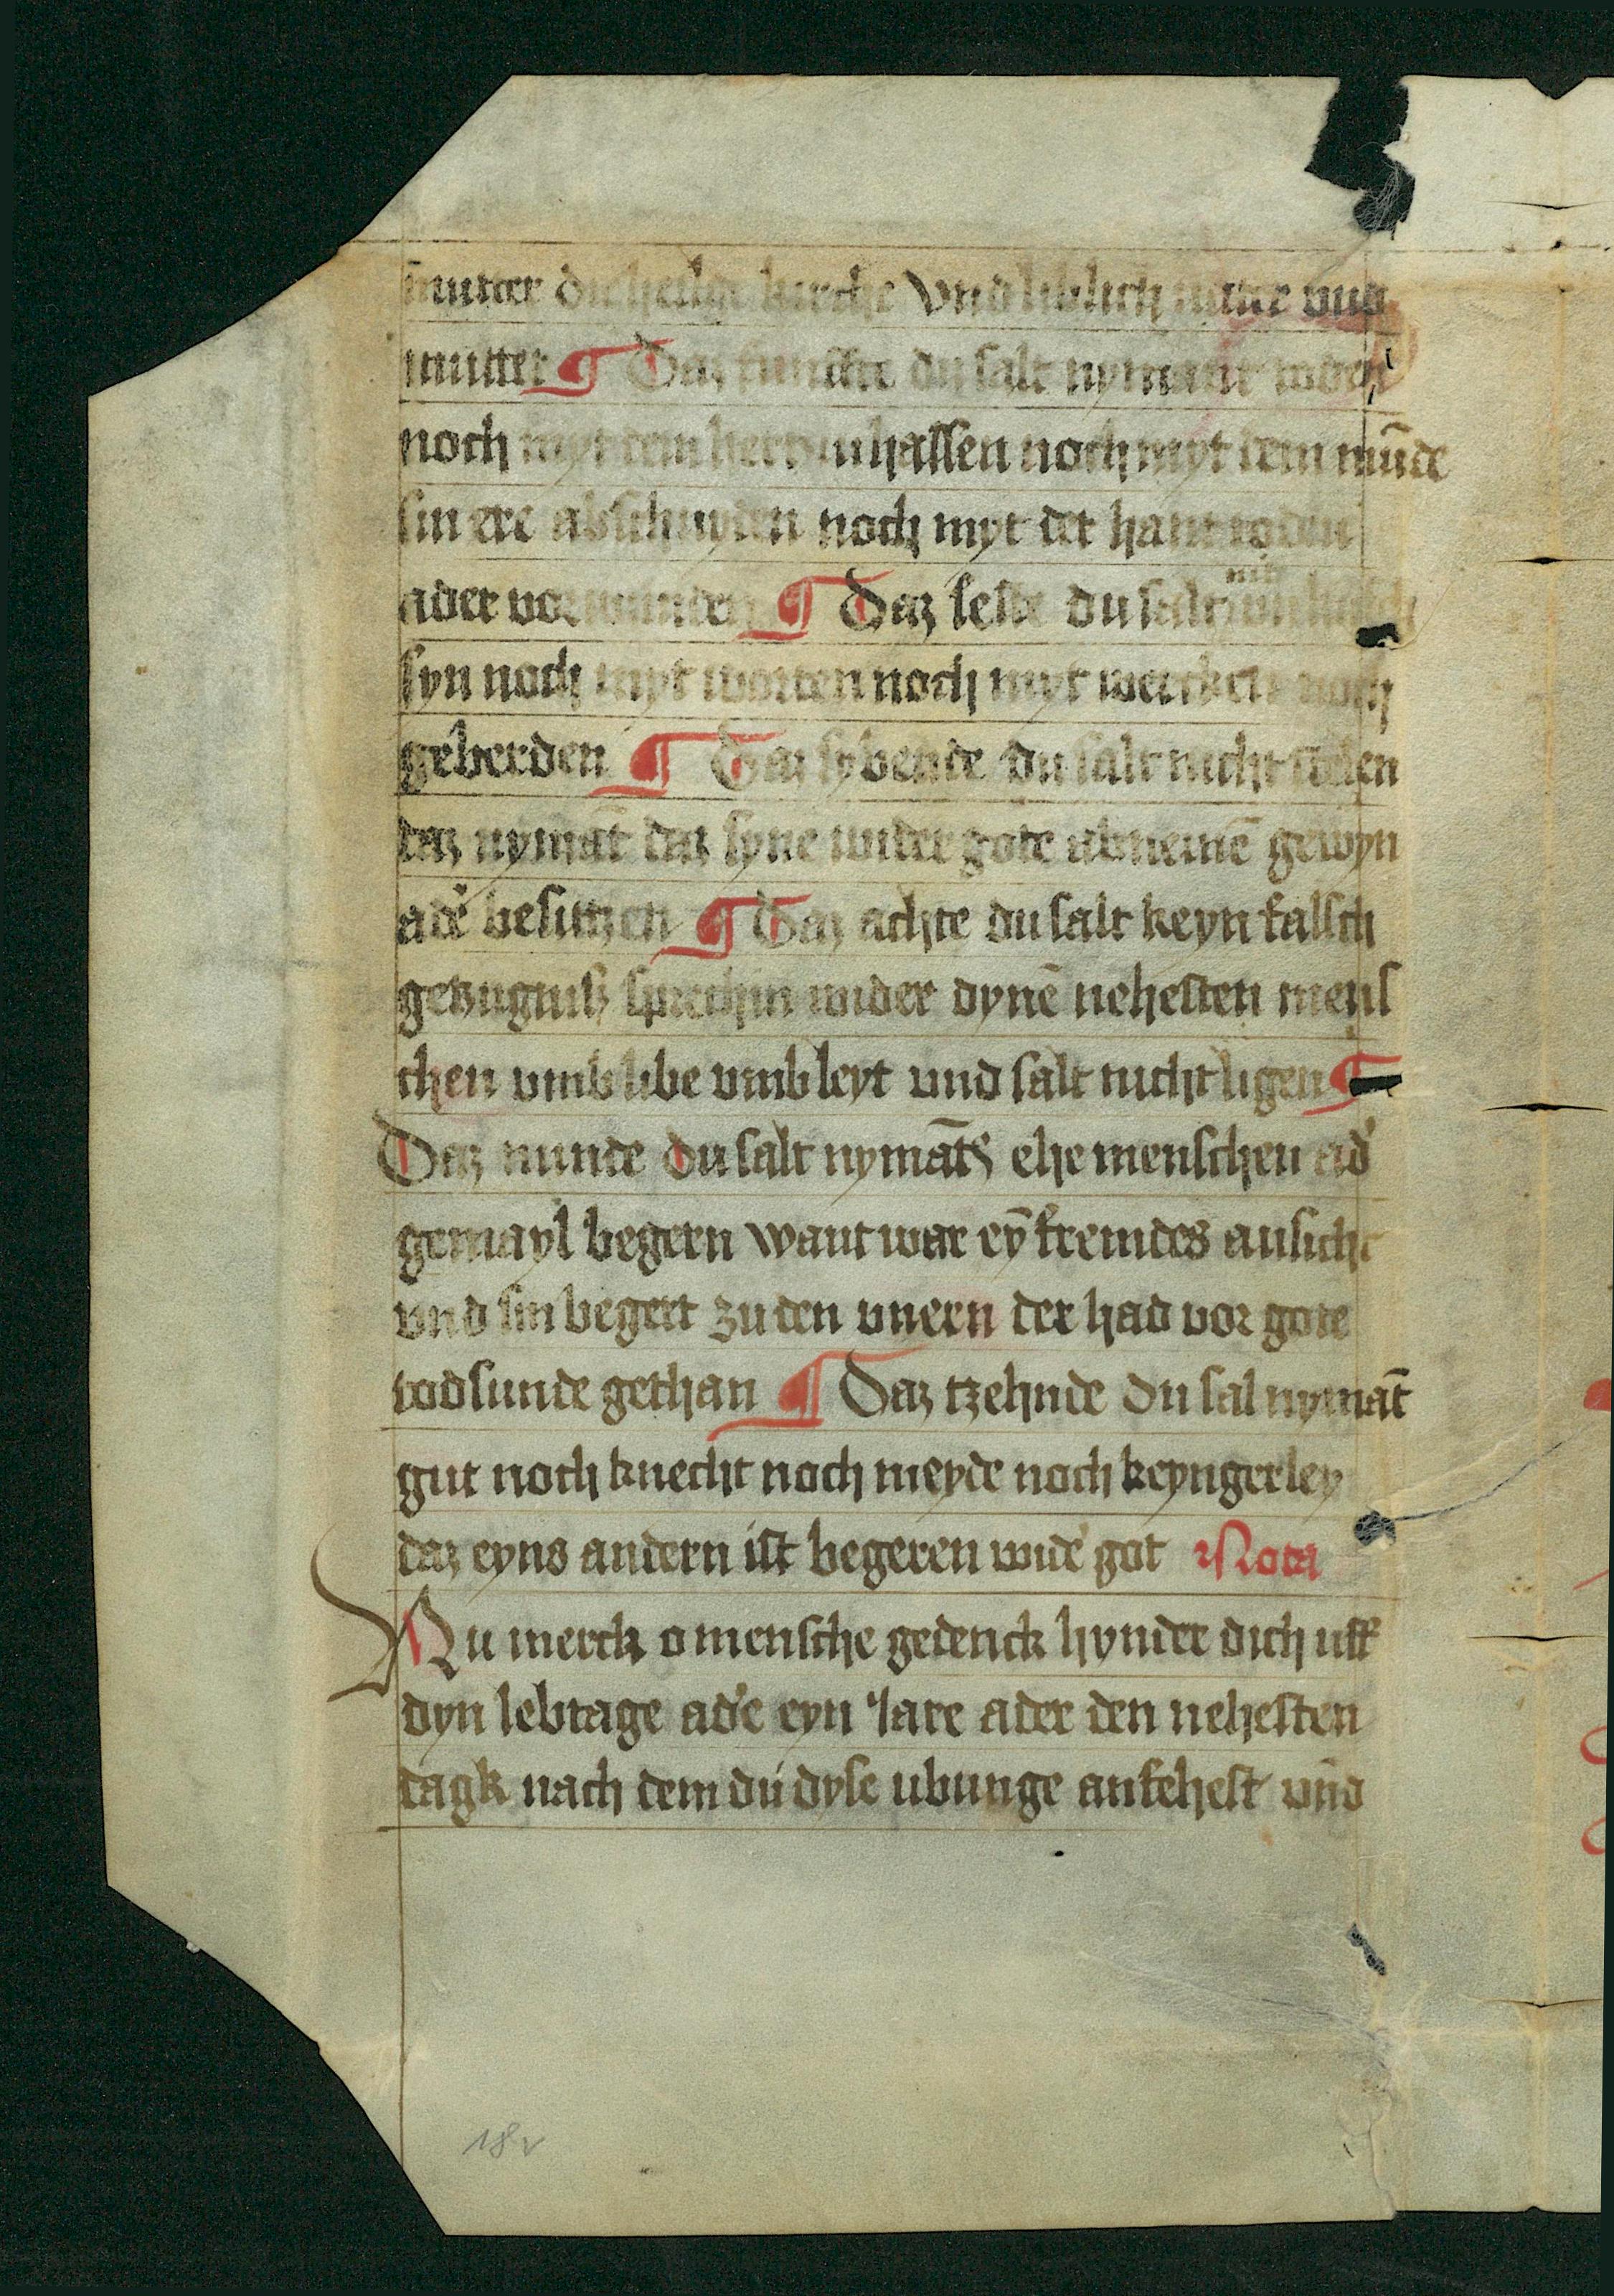 mutter die heilge kirche Vnd liblich vater vnd
mutter ¶ Daz funffte du salt nymant toden
noch myt dem hertzin hassen noch myt dem mūde
sin ere abschnyden noch myt der hant toden
ader vorwunden ¶ Daz seste du salt nit
syn noch myt worten noch myt wercken noch
geberden ¶ Daz sybende du salt nicht stelen
daz nymāt daz syne wider gote abnemē gewyn
ade᷒ besittzen ¶ Daz achte du salt keyn falsch
getzugnisz sprechin wider dynē nehesten mens
chen vmb libe vmb leyt und salt nicht ligen ¶
Daz nunde du salt nymāts ehe menschen ad᷒
gemayl begern want wer eȳ fremdes ansicht
vnd sin begert zu den vnern der had vor gote
todsunde gethan ¶ Daz tzehnde du sal nymāt
gut noch knecht noch meyde noch keyngerley
daz eyns andern ist begeren wide᷒ got Nota
Nu merck o mensche gedenck hynder dich uff
dyn lebtage ad᷒e eyn Jare ader den nehesten
tagk nach dem du dyse ubunge anfehest vnd
18v